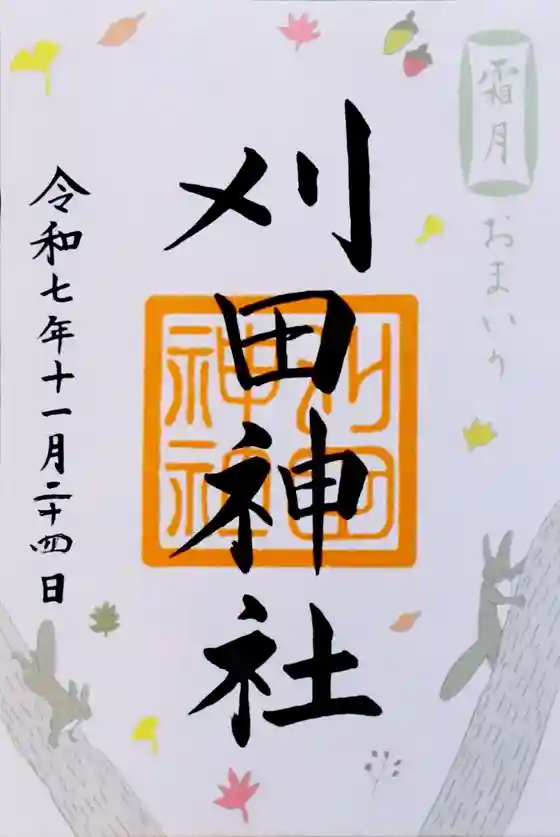 霜月
おまいり
刈田神社
刈田
神社
令和七年十一月二十四日